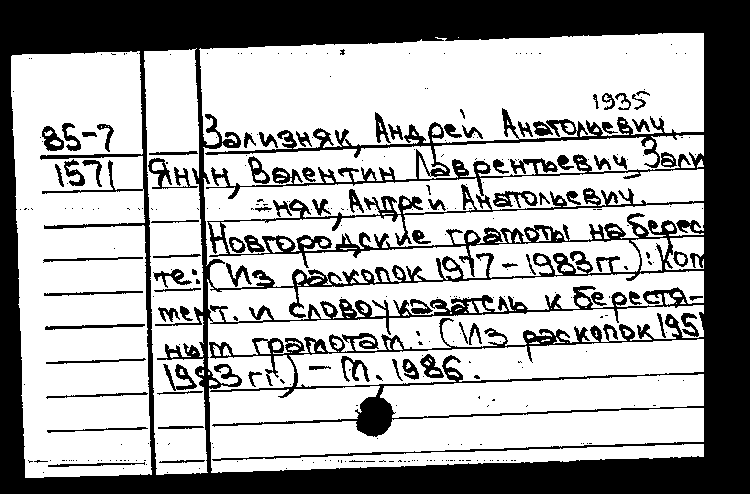 1935
85-7 Зализняк, Андрей Анатольевич.
1571 Янин, Валентин Лаврентьевич Зали
=няк, Андрей Анатольевич.
Новгородские грамоты на берес
те: (Из раскопок 1977-1983 гг.): Ком
мент. и словоуказатель к берестя-
ным грамотам: (Из раскопок 1951
1983 гг.) - М. 1986.